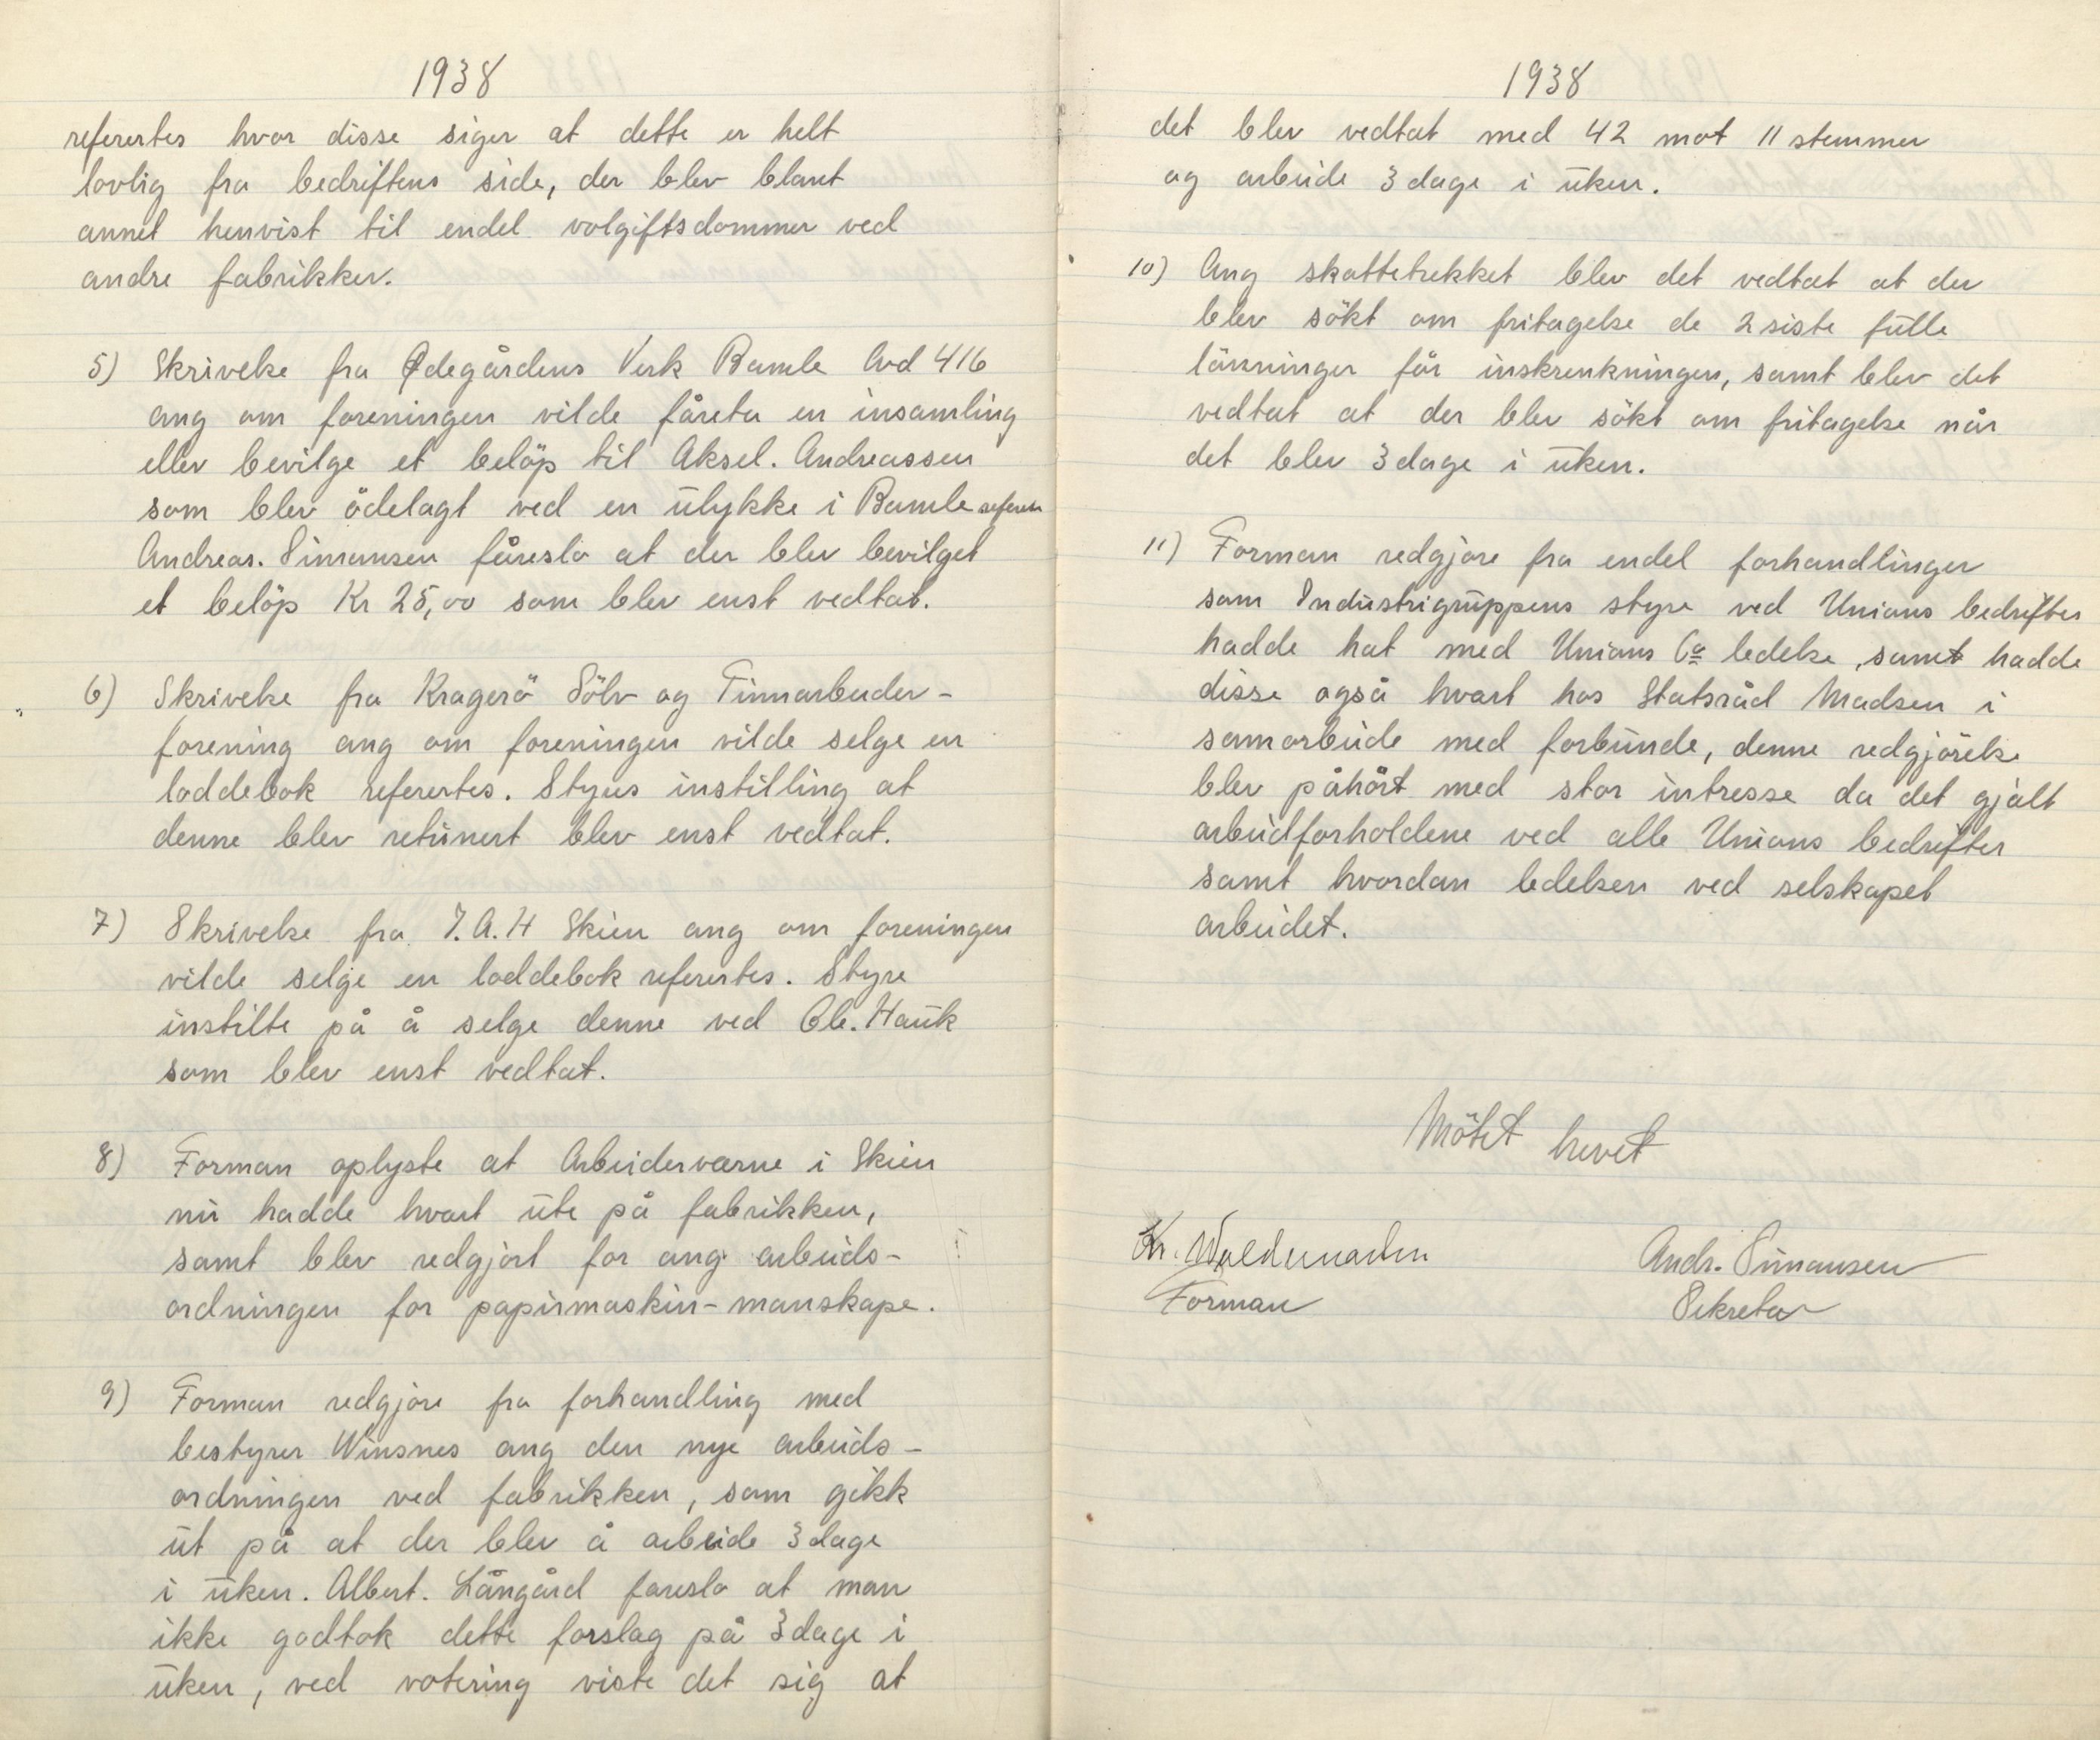 1938
referertes hvor disse siger at dette er helt
lovlig fra bedriftens side, der blev blant
annet henvist til endel volgiftsdommer ved
andre fabrikker.
5) Skrivelse fra Ødegårdens Verk Bamle Avd 416
ang om foreningen vilde fåreta en insamling
eller bevilge et belöp til Aksel. Andreassen
som blev ödelagt ved en ulykke i Bamle referer
Andreas. Simonsen fåreslo at der blev bevilget
et belöp Kr 25,00 som blev enst vedtat.
6) Skrivelse fra Kragerö Sölv og Tinnarbeider-
forening ang om foreningen vilde selge en
loddebok referertes. Styres instilling at
denne blev retunert blev enst vedtat.
7) Skrivelse fra I.A.H Skien ang om foreningen
vilde selge en loddebok referertes. Styre
instilte på å selge denne ved Ole. Hauk
som blev enst vedtat.
8) Forman oplyste at Arbeiderværne i Skien
nu hadde hvart ute på fabrikken,
samt blev redgjort for ang arbeids-
ordningen for papirmaskin-manskape.
9) Forman redgjore fra forhandling med
bestyrer Winsnes ang den nye arbeids-
ordningen ved fabrikken, som gikk
ut på at der blev å arbeide 3 dage
i uken. Albert. Långård foreslo at man
ikke godtok dette forslag på 3 dage i
uken, ved votering viste det sig at
1938
det blev vedtat med 42 mot 11 stemmer
og arbeide 3 dage i uken.
10) Ang skattetrekket blev det vedtat at der
blev sökt om fritagelse de 2 siste fulle
lönninger får inskrenkningen, samt blev det
vedtat at der blev sökt om fritagelse når
det blev 3 dage i uken.
11) Forman redgjore fra endel forhandlinger
som Industrigruppens styre ved Unions bedrifter
hadde hat med Unions Co ledelse, samt hadde
disse også hvart hos Statsråd Madsen i
samarbeide med forbunde, denne redgjörelse
blev påhårt med stor intresse da det gjalt
arbeidforholdene ved alle Unions bedrifter
samt hvordan ledelsen ved selskapet
arbeidet.
Mötet hevet
Kr. Waldemarsen
Forman
Andr. Simonsen
Sekretær